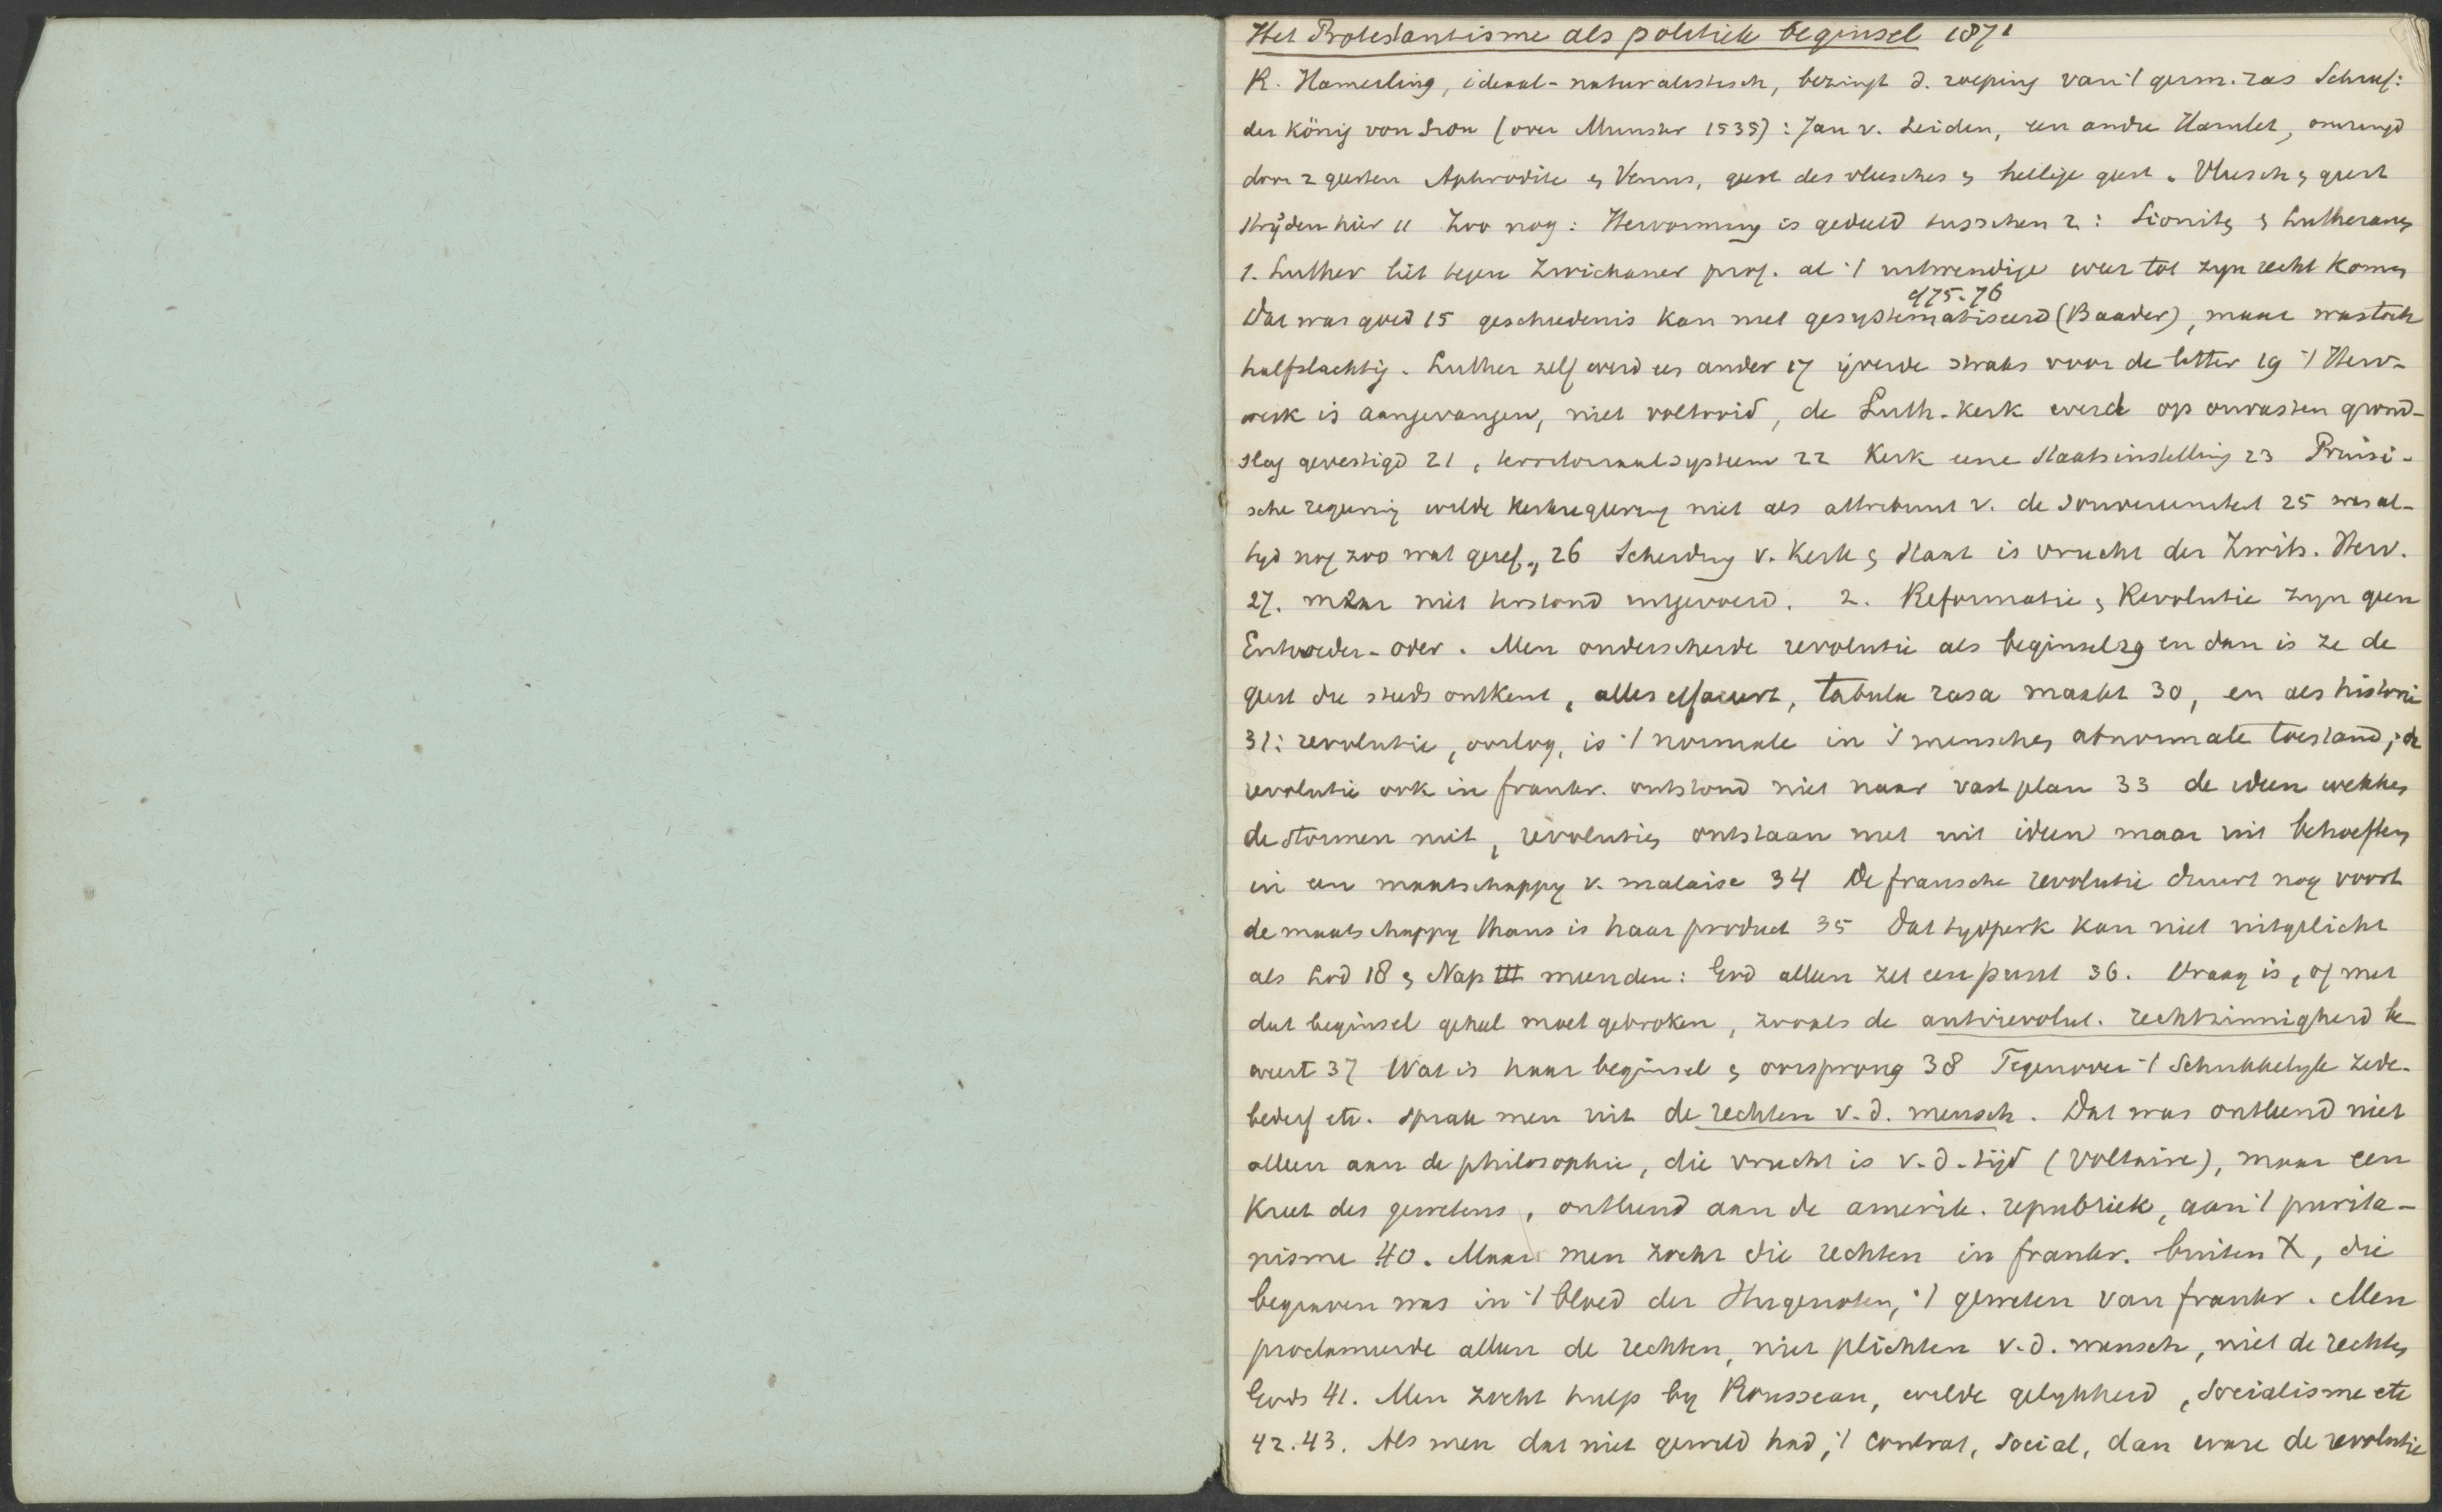 Het Protestantisme als politiek beginsel 1871
R. Hamerling, ideaal-naturalistisch, bezingt d. roeping van 't germ. ras Schreef:
der König von Sion (over Munster 1535): Jan v. Leiden, een andre Hamlet, omringd
door 2 geesten Aphrodite & Venus, geest des vleesches & heilige geest. Vleesch & geest
strijden hier 11 Zoo nog: Hervorming is gedeeld tusschen 2: Sioniten & Lutheranen
1. Luther liet tegen Zwickauer prof. al 't uitwendige weer tot zyn recht komen
Dat was goed 15 geschiedenis kan niet gesystematiseerd (Baader), maar was toch
cf 75-76
halfslachtig. Luther zelf werd een ander 17 ijverde straks voor de letter 19 't Herv-
werk is aangevangen, niet voltooid, de Luth-kerk werd op onvasten grond-
slag gevestigd 21, territoriaalsysteem 22 Kerk eene Staatsinstelling 23 Pruisi-
sche regering wilde kerkregering niet als attribuut v. de souvereiniteit 25 was al-
tyd nog zoo wat geref., 26 Scheiding v. Kerk & Staat is vrucht der Zwits. Herv.
27. maar niet terstond uitgevoerd. 2. Reformatie & Revolutie zyn geen
Entweder-oder. Men onderscheide revolutie als beginsel 29 en dan is ze de
geest die steeds ontkent, alles effaceert, tabula rasa maakt 30, en als historie
31: revolutie, oorlog, is 't normale in 's menschen abnormale toestand; de
revolutie ook in frankr. ontstond niet naar vast plan 33 de ideen wekken
de stormen niet, revoluties ontstaan niet uit ideen maar uit behoeften
in een maatschappy v. malaise 34 De fransche revolutie duurt nog voort
de maatschappy thans is haar product 35 Dat tydperk kan niet uitgelicht
als Lod 18 & Nap III meenden: God alleen zet een punt 36. Vraag is, of met
dat beginsel geheel moet gebroken, zooals de antirevolut. rechtzinnigheid be-
weert 37 Wat is haar beginsel & oorsprong 38 Tegenover 't schrikkelyk zede-
bederf etc. sprak men uit de rechten v. d. mensch. Dat was ontleend niet
alleen aan de philosophie, die vrucht is v. d. tijd (Voltaire), maar een
kreet des gewetens, ontleend aan de amerik. republiek, aan 't purita-
nisme 40. Maar men zocht die rechten in frankr. buiten X, die
begraven was in 't bloed der Hugenoten, 't geweten van frankr. Men
proclameerde alleen de rechten, niet plichten v. d. mensch, niet de rechten
Gods 41. Men zocht hulp by Rousseau, wilde gelykheid, socialisme etc
42.43. Als men dat niet gewild had, 't contrat, social, dan ware de revolutie